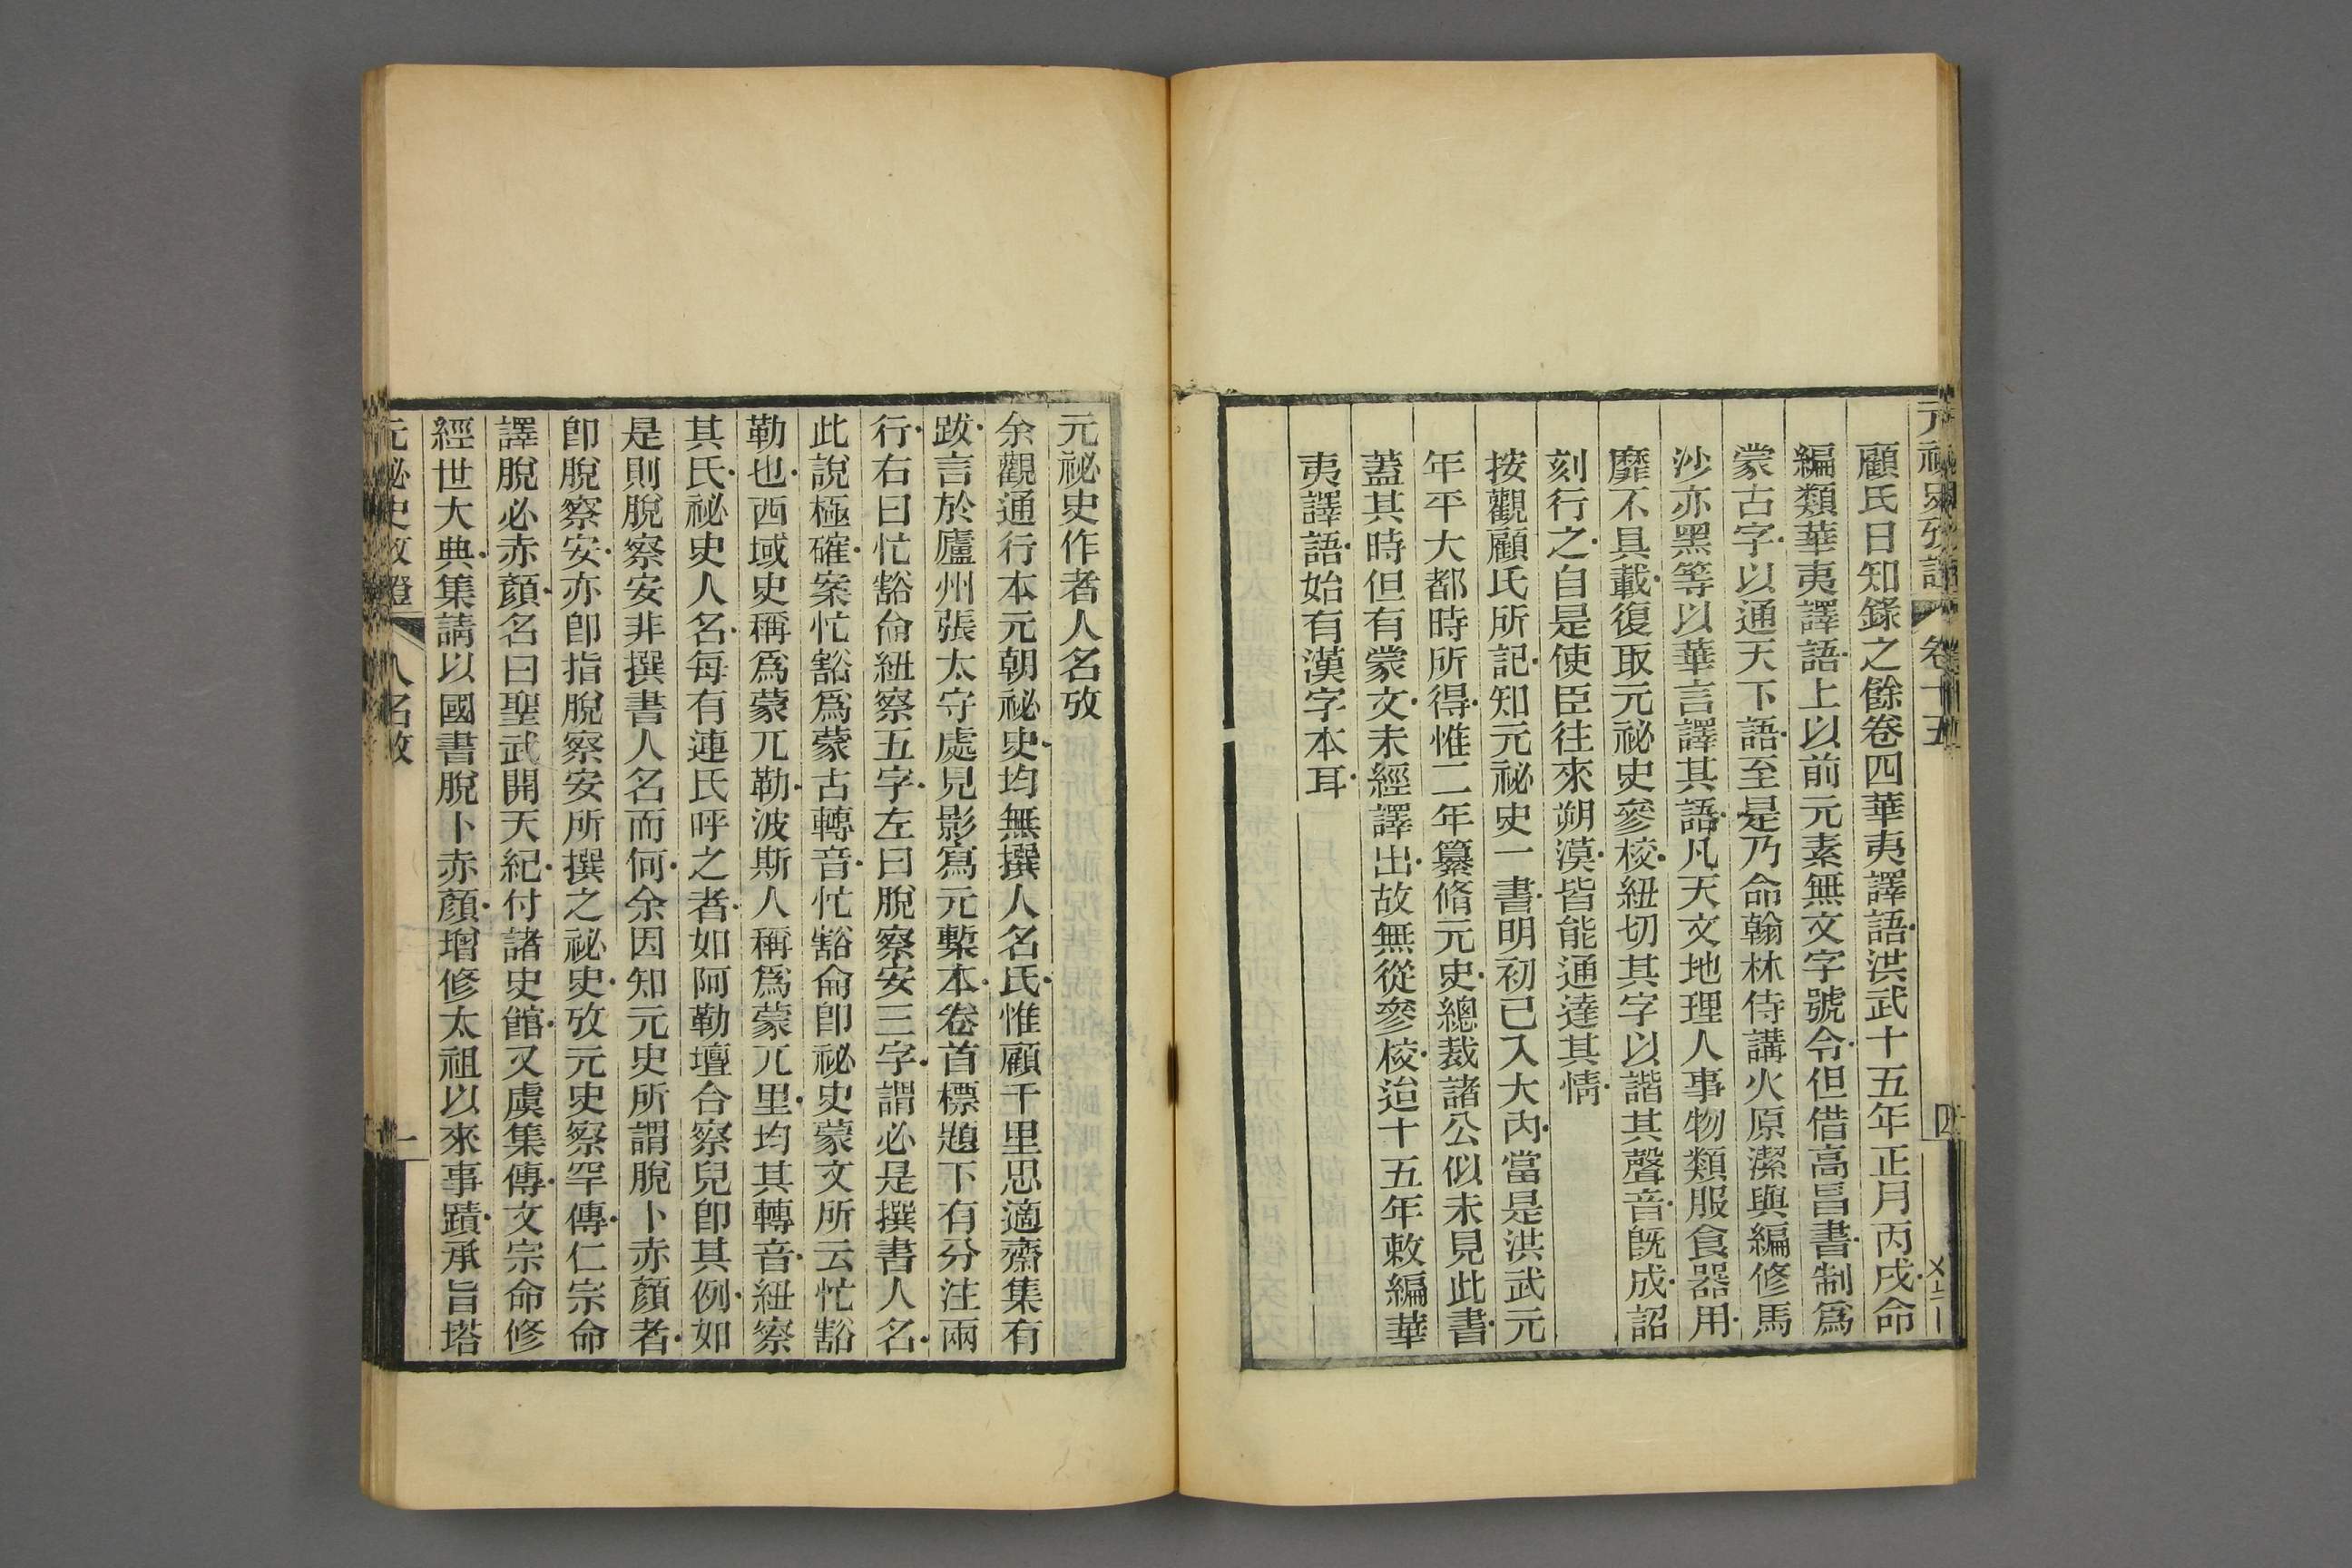 元祕史攷證 卷十五 四
顧氏日知錄之餘卷四華夷譯語洪武十五年正月丙戌命
編類華夷譯語上以前元素無文字號令但借高昌書制爲
蒙古字以通天下語至是乃命翰林侍講火原潔與編修馬
沙亦黑等以華言譯其語凡天文地理人事物類服食器用
靡不具載復取元祕史參校紐切其字以諧其聲音旣成詔
刻行之自是使臣往來朔漠皆能通達其情
按觀顧氏所記知元祕史一書明初已入大內當是洪武元
年平大都時所得惟二年纂脩元史總裁諸公似未見此書
蓋其時但有蒙文未經譯出故無從參校迨十五年敕編華
夷譯語始有漢字本耳
元祕史作者人名攷
余觀通行本元朝祕史均無撰人名氏惟顧千里思適齋集有
跋言於廬州張太守處見影寫元槧本卷首標題下有分注兩
行右曰忙豁侖紐察五字左曰脫察安三字謂必是撰書人名
此說極確案忙豁爲蒙古轉音忙豁侖卽祕史蒙文所云忙豁
勒也西域史稱爲蒙兀勒波斯人稱爲蒙兀里均其轉音紐察
其氏祕史人名每有連氏呼之者如阿勒壇合察兒卽其例如
是則脫察安非撰書人名而何余因知元史所謂脫卜赤顏者
卽脫察安亦卽指脫察安所撰之祕史攷元史察罕傳仁宗命
譯脫必赤顏名曰聖武開天紀付諸史館又虞集傳文宗命修
經世大典集請以國書脫卜赤顏增修太祖以來事蹟承旨塔
元祕史攷證 人名攷 一